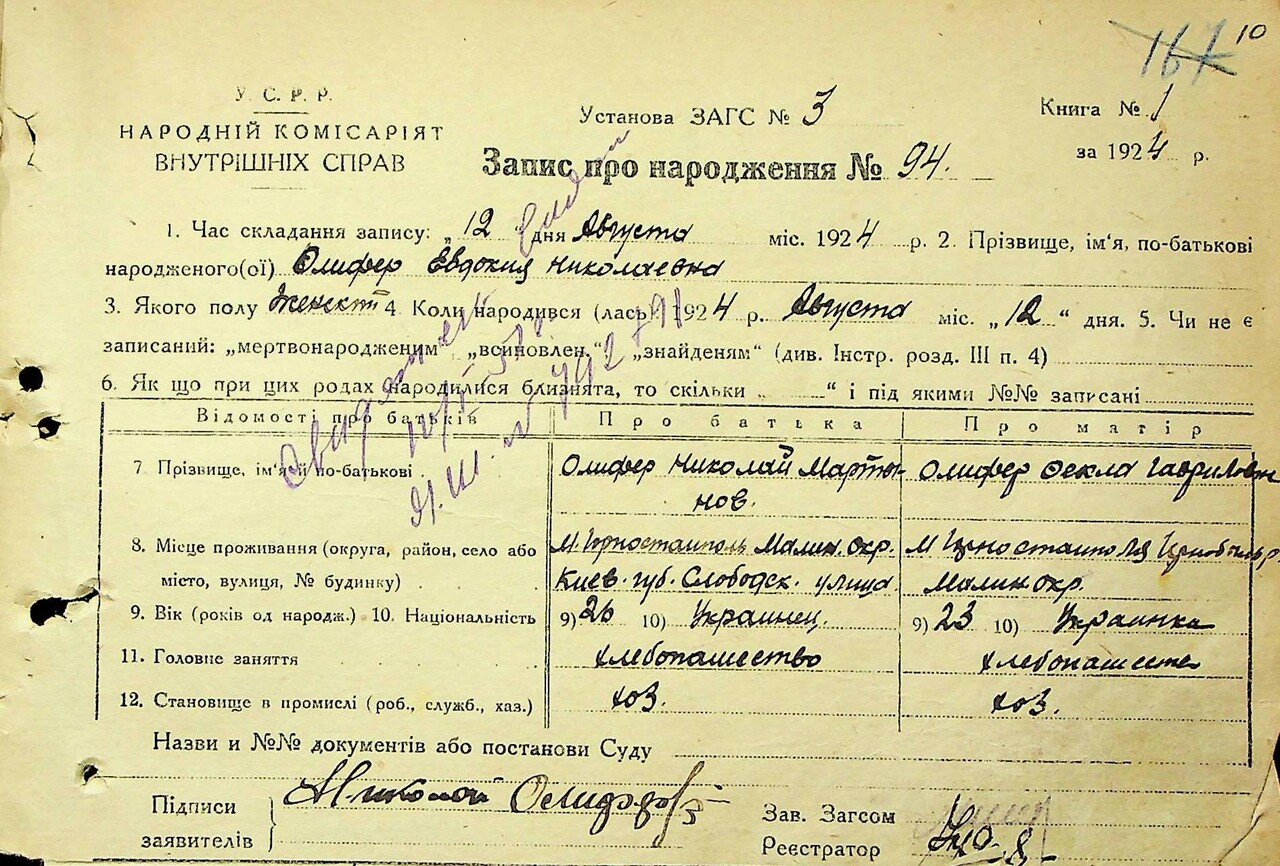 167 10
У. С. Р. Р.
НАРОДНІЙ КОМІСАРІЯТ
ВНУТРІШНІХ СПРАВ
Установа ЗАГС № 3
Книга № 1
за 1924 р.
Запис про народження № 94.
1. Час складання запису: „12“ дня Августа міс. 1924 р. 2. Прізвище, ім'я, по-батькові
народженого(ої) Олифер Евдокия Николаевна
3. Якого полу Женск 4 Коли народився (лась) 1924 р. Августа міс. „12“ дня. 5. Чи не є
записаний: „мертвонародженим“ „всиновлен.“ „знайденям“ (див. Інстр. розд. III п. 4)
6. Як що при цих родах народилися близнята, то скільки „ “ і під якими №№ записані
Відомості про батьків Про батька Про матір
7 Прізвище, ім'я й по-батькові Олифер Николай Мартынов. Олифер Фекла Гавриловн
8. Місце проживання (округа, район, село або М. Горностаиполь Малин. окр. М Горностаиполя
місто, вулиця, № будинку) Киев. губ. Слободск. улица Малин окр.
9. Вік (років од народж.) 10. Національність 9) 26 10) Украинец. 9) 23 10) Украинка
11. Головне заняття хлебопашество хлебопашеств
12. Становище в промислі (роб., служб., хаз.) хоз. хоз.
Назви и №№ документів або постанови Суду
Підписи
заявителів
Николай
Зав. Загсом
Реєстратор